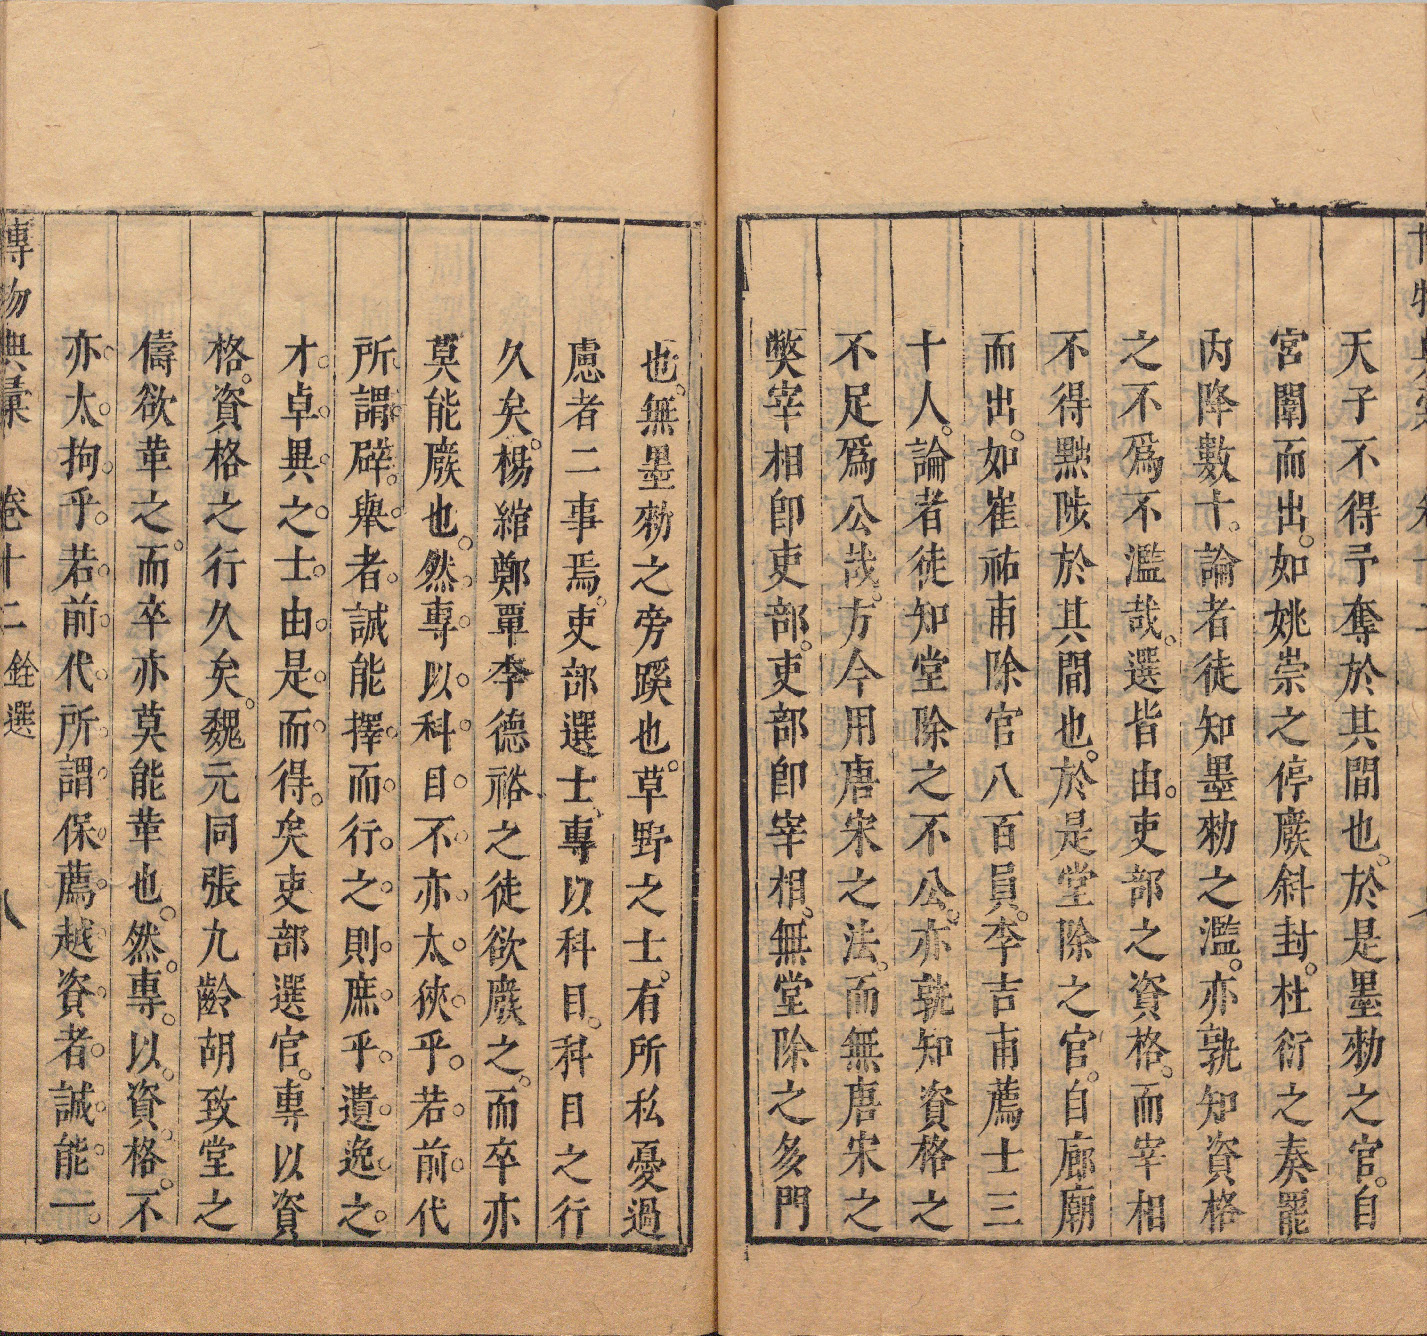 天子不得予奪於其間也。於是墨勑之官。自
宮闈而出。如姚崇之停廢斜封。杜衍之奏罷
内降數十。論者徒知墨勑之濫。亦孰知資格
之不爲不濫哉。選皆由。吏部之資格。而宰相
不得黜陟於其間也。於是堂除之官。自廊廟
而出。如崔祐甫除官八百員。李吉甫薦士三
十人。論者徒知堂除之不公。亦孰知資格之
不足爲公哉。方今用唐宋之法。而無唐宋之
獘宰相卽吏部。吏部卽宰相。無堂除之多門
也。無墨勑之旁蹊也。草野之士。有所私憂過
慮者二事焉。吏部選士、專以科目。科目之行
久矣。楊綰鄭覃李德裕之徒欲廢之。而卒亦
莫能廢也。然專以科目不亦太狹乎。若前代
所謂辟。舉者。誠能擇而行之則庶乎遺逸之
才卓異之士由是而得。矣吏部選官。專以資
格。資格之行久矣。魏元同張九齡胡致堂之
儔欲革之。而卒亦莫能革也。然。專。以資格。不
亦太拘乎。若前代所謂保薦越資者誠能一
博物典彙 卷十二 銓選 八